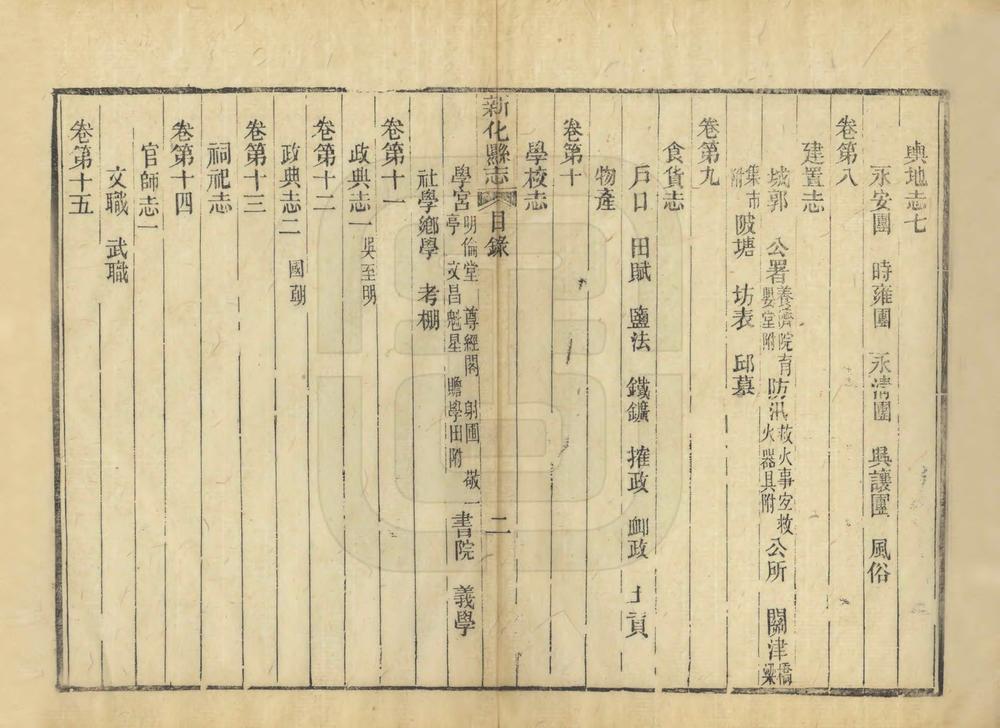 輿地志七
永安團　時雍團　永清團　興讓團　風俗
卷第八
建置志
城郭　公署養濟院育嬰堂附　防汛救火事宜救火器具附　公所　關津橋梁
集市附　陂塘　坊表　邱墓
卷第九
食貨志
戶口　田賦　鹽法　鐵鑛　搉政　卹政　土貢
物產
卷第十
學校志
新化縣志　目錄　二
學宮明倫堂　尊經閣　射圃　敬一亭　文昌魁星　贍學田附　書院　義學
社學鄉學　考棚
卷第十一
政典志一吳至明
卷第十二
政典志二　國朝
卷第十三
祠祀志
卷第十四
官師志一
文職　武職
卷第十五